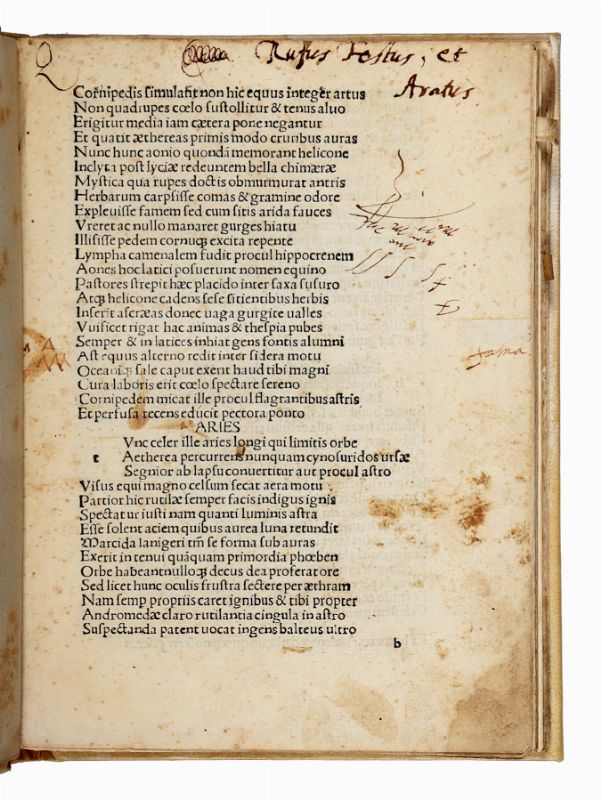 Rufus Festus, et
Aratus
Cornipedis simulasit non hic equus integer artus
Non quadrupes cœlo sustollitur & tenus aluo
Erigitur media iam cætera pone negantur
Et quatit æthereas primis modo cruribus auras
Nunc hunc aonio quondā memorant helicone
Inclyta post lyciæ redeuntem bella chimæræ
Mystica qua rupes doctis obmurmurat antris
Herbarum carpsisse comas & gramine odore
Expleuisse famem sed cum sitis arida fauces
Vreret ac nullo manaret gurges hiatu
Illisisse pedem cornuqꝫ excita repente
Lympha camenalem fudit procul hippocrenem
Aones hoc latici posuerunt nomen equino
Pastores strepit hæc placido inter saxa susuro
Atqꝫ helicone cadens sese sitientibus herbis
Inserit ascræas donec uaga gurgite ualles
Viuificet rigat hac animas & thespia pubes
Semper & in latices inhiat gens fontis alumni
Ast equus alterno redit inter sidera motu
Oceaniqꝫ sale caput exerit haud tibi magni
Cura laboris erit cœlo spectare sereno
Cornipedem micat ille procul flagrantibus astris
Et perfusa recens educit pectora ponto
ARIES
Vnc celer ille aries longi qui limitis orbe
t Aetherea percurrens nunquam cynosuridos ursæ
Segnior ab lapsu conuertitur aut procul astro
Visus equi magno celsum secat aera motu
Partior hic rutilæ semper facis indigus ignis
Spectatur iusti nam quanti luminis astra
Esse solent aciem quibus aurea luna retundit
Marcida lanigeri tm̄ se forma sub auras
Exerit in tenui quāquam primordia phœben
Orbe habeant nulloqꝫ decus dea proferat ore
Sed licet hunc oculis frustra sectere per æthram
Nam semp propriis caret ignibus & tibi propter
Andromedæ claro rutilantia cingula in astro
Suspectanda patent uocat ingens balteus ultro
b
fama